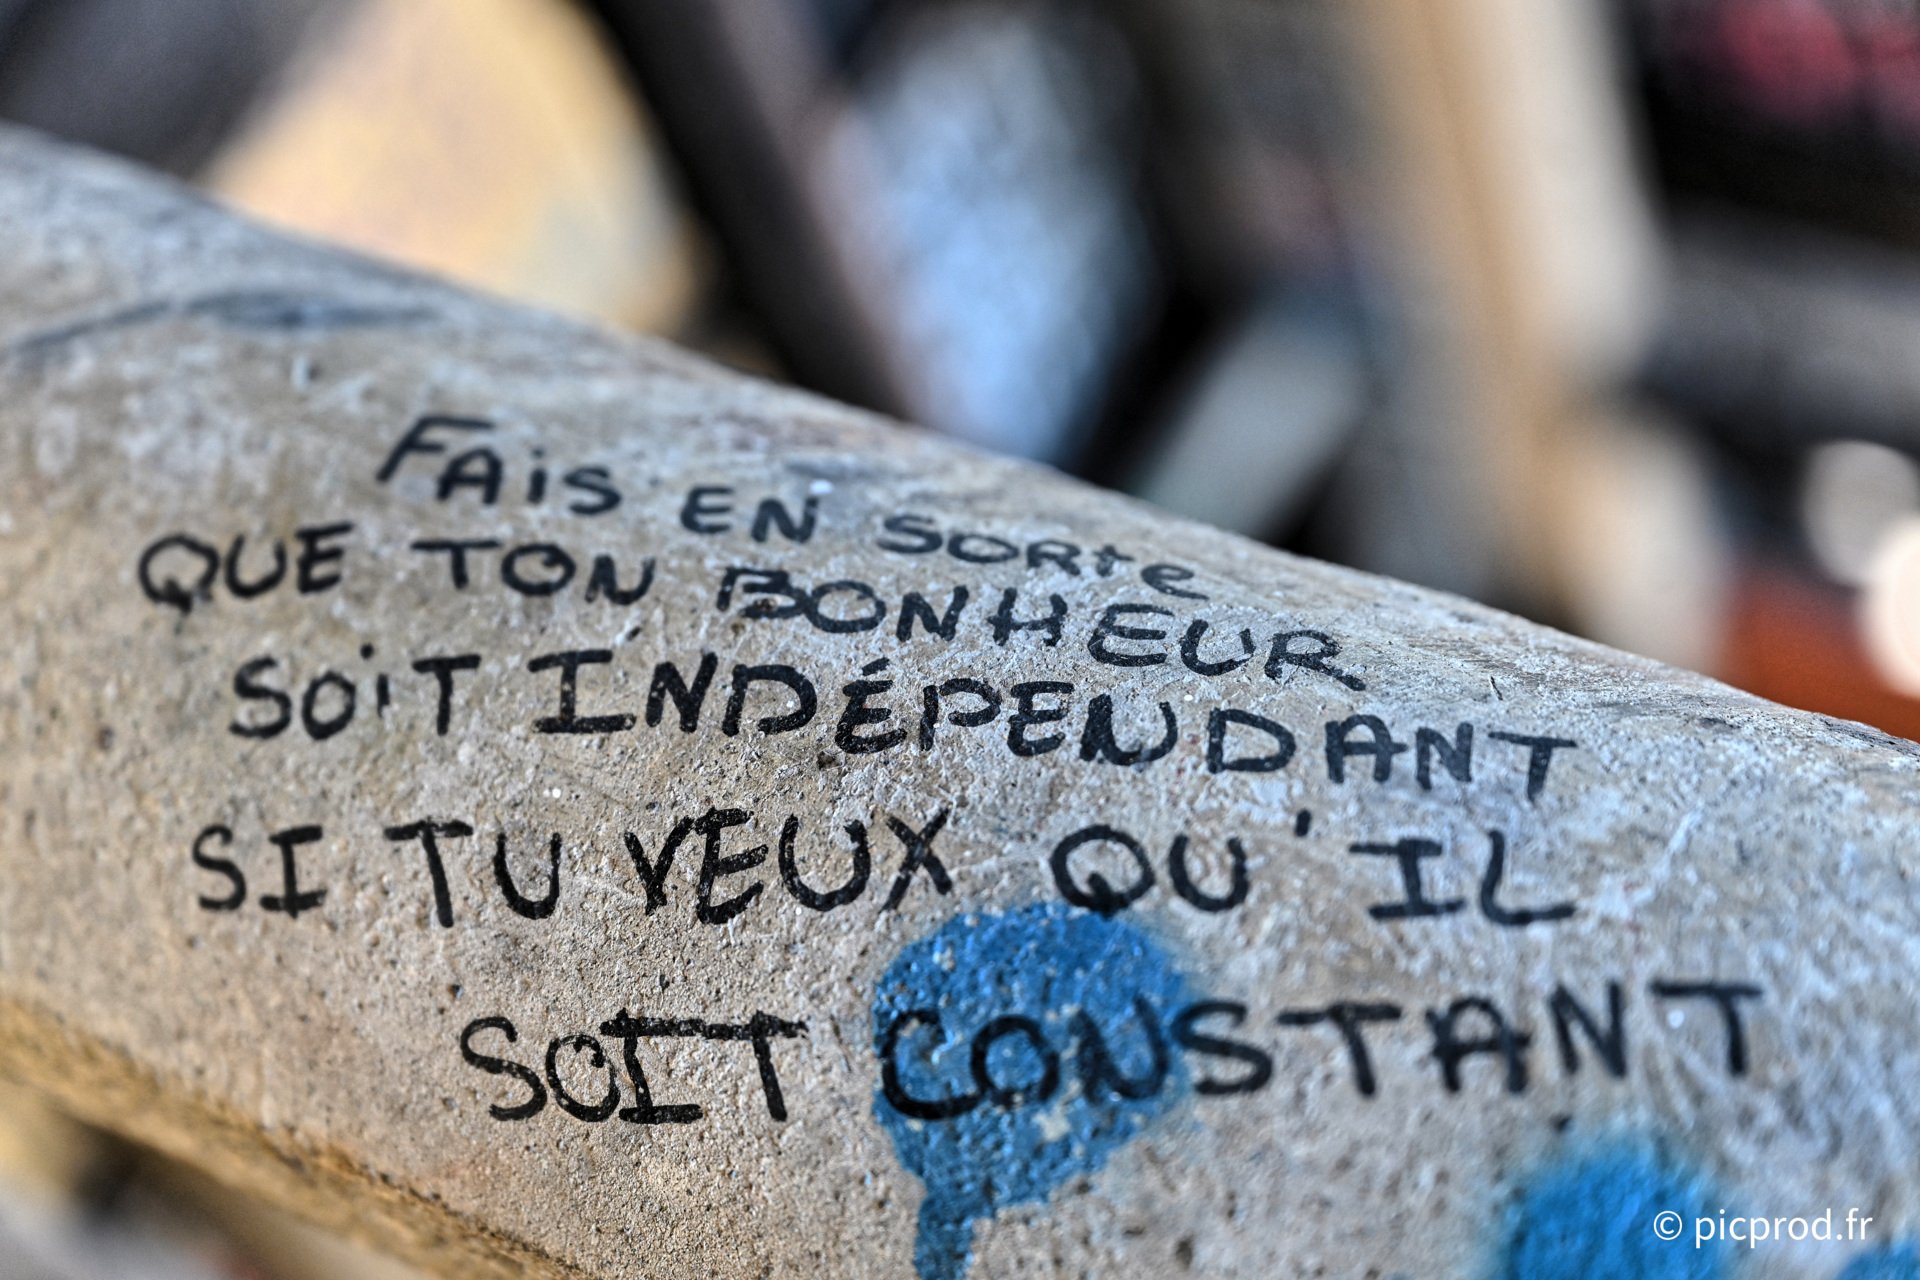 FAiS EN SORte
QUE TON BONHEUR
SOiT INDÉPENDANT
SI TU VEUX QU'IL
SOIT CONSTANT
© picprod.fr